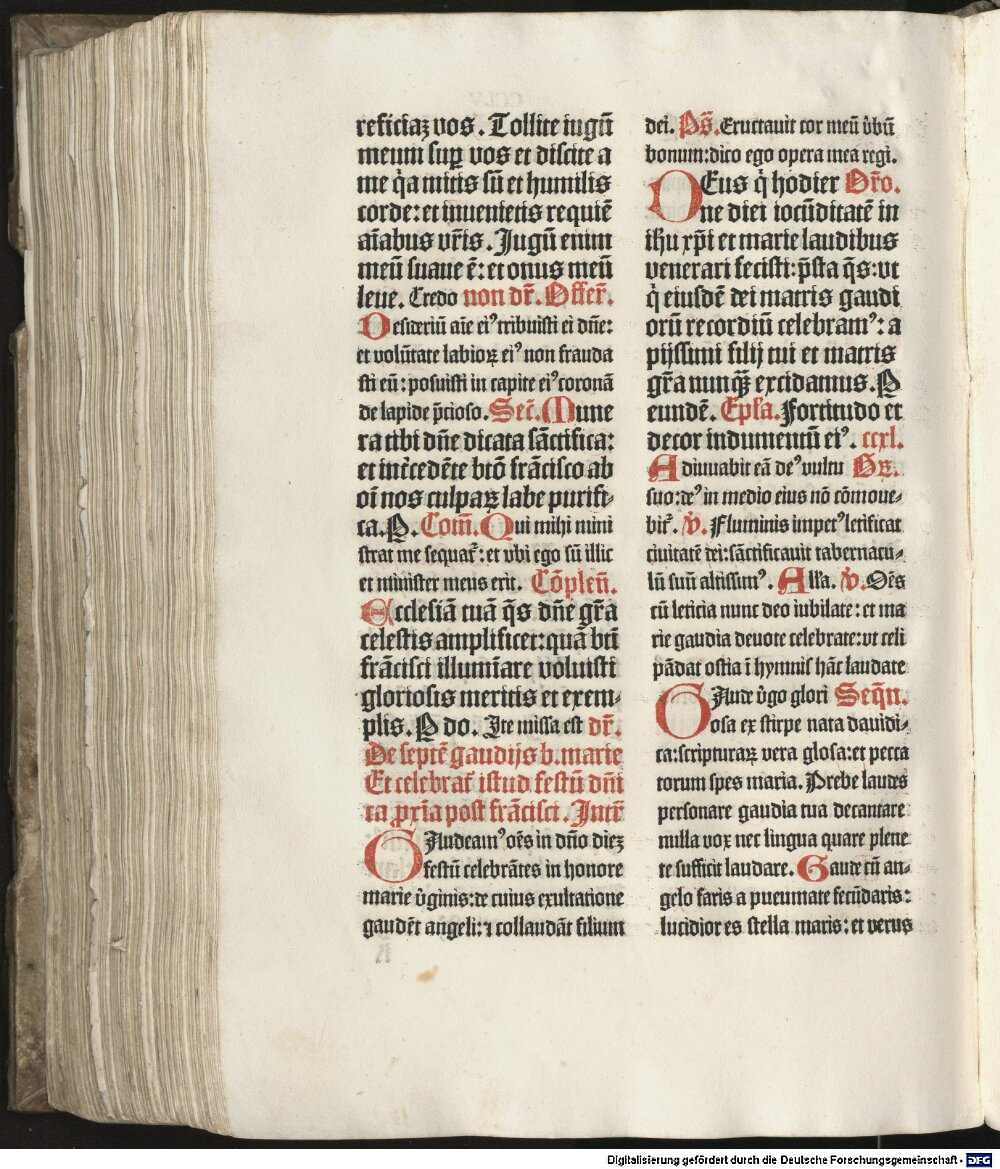 reficiaꝫ vos. Tollite iugū
meum suꝑ vos et discite a
me q̇a mitis sū et humilis
corde: et inuenietis requiē
aīabus vr̄is. Jugū enim
meū suaue ē: et onus meū
leue. Credo non dr̄. Offer̄.
Desideriū aīe eiꝰ tribuisti ei dn̄e:
et volūtate labioꝝ eiꝰ non frauda
sti eū: posuisti in capite eiꝰ coronā
de lapide p̄cioso. Sec̄. Mune
ra tibi dn̄e dicata sāctifica:
et int̄cedēte btō frācisco ab
oī nos culpaꝝ labe purifi-
ca. P. Com̄. Qui mihi mini
strat me sequat̄: et vbi ego sū illic
et minister meus erit. Cōplen̄.
Ecclesiā tuā q̄s dn̄e gr̄a
celestis amplificet: quā bt̄i
frācisci illumīare voluisti
gloriosis meritis et exem-
plis. P do. Ite missa est dr̄.
De septē gaudijs b. marie
Et celebrat̄ istud festū dn̄i
ca ꝓxīa post frācisci. Intr̄
GAudeamꝰ oēs in dn̄o dieꝫ
festū celebrātes in honore
marie v̇ginis: de cuius exultatione
gaudēt angeli: ⁊ collaudāt filium
dei. Ps̄. Eructauit cor meū v̇bū
bonum: dico ego opera mea regi.
DEus q̇ hodier Or̄o.
ne diei iocūditatē in
ihu xp̄i et marie laudibus
venerari fecisti: p̄sta q̄s: vt
q̇ eiusdē dei matris gaudi
orū recordiū celebramꝰ: a
pijssimi filij tui et matris
gr̄a nunqꝫ excidamus. P
eundē. Epl̄a. Fortitudo et
decor indumentū eiꝰ. ccxl.
Adiuuabit eā deꝰ vultu Gꝝ.
suo: deꝰ in medio eius nō cōmoue-
bit̄. v̇. Fluminis impetꝰ letificat
ciuitatē dei: sāctificauit tabernacu-
lū suū altissimꝰ. All̄a. v̇. Oēs
cū leticia nunc deo iubilate: et ma
rie gaudia deuote celebrate: vt celi
pādat ostia ī hymnis hāc laudate
GAude v̇go glori Seqn̄.
osa ex stirpe nata dauidi-
ca: scripturaꝝ vera glosa: et pecca
torum spes maria. Prebe laudes
personare gaudia tua decantare
nulla vox nec lingua quare plene
te sufficit laudare. Gaude cū an-
gelo faris a pneumate fecūdaris:
lucidior es stella maris: et verus
Digitalisierung gefördert durch die Deutsche Forschungsgemeinschaft - DFG